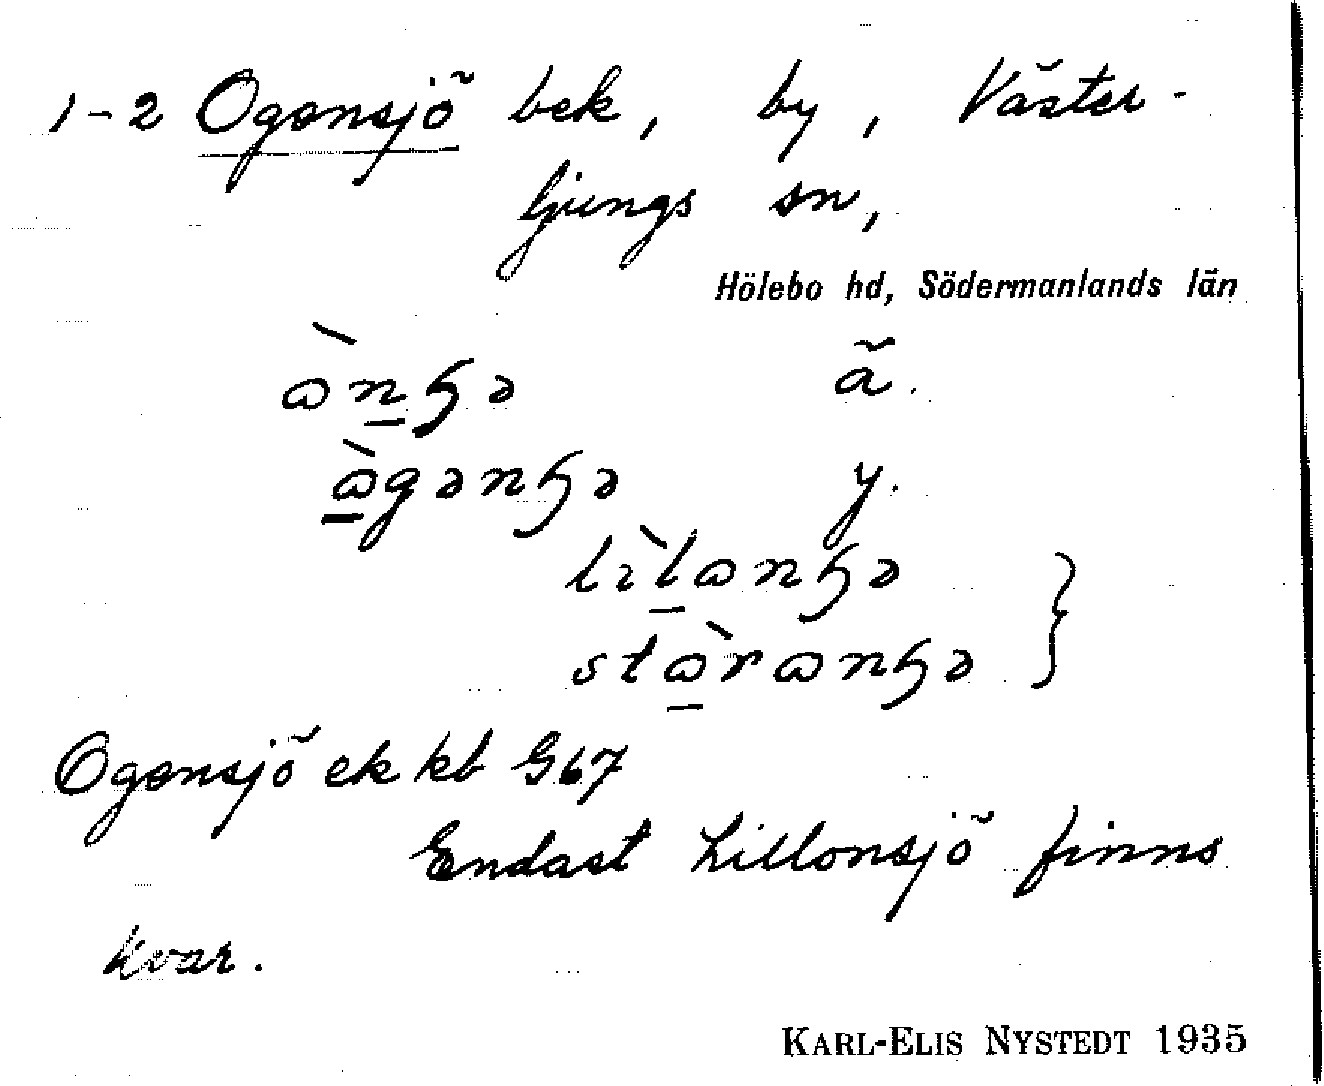 1-2 Ogensjö bek, by, Väster-
ljungs sn,
Hölebo hd, Södermanlands län
ä.
y.
Ogensjö ek kb G67
Endast Lillonsjö finns
kvar.
KARL-ELIS NYSTEDT 1935